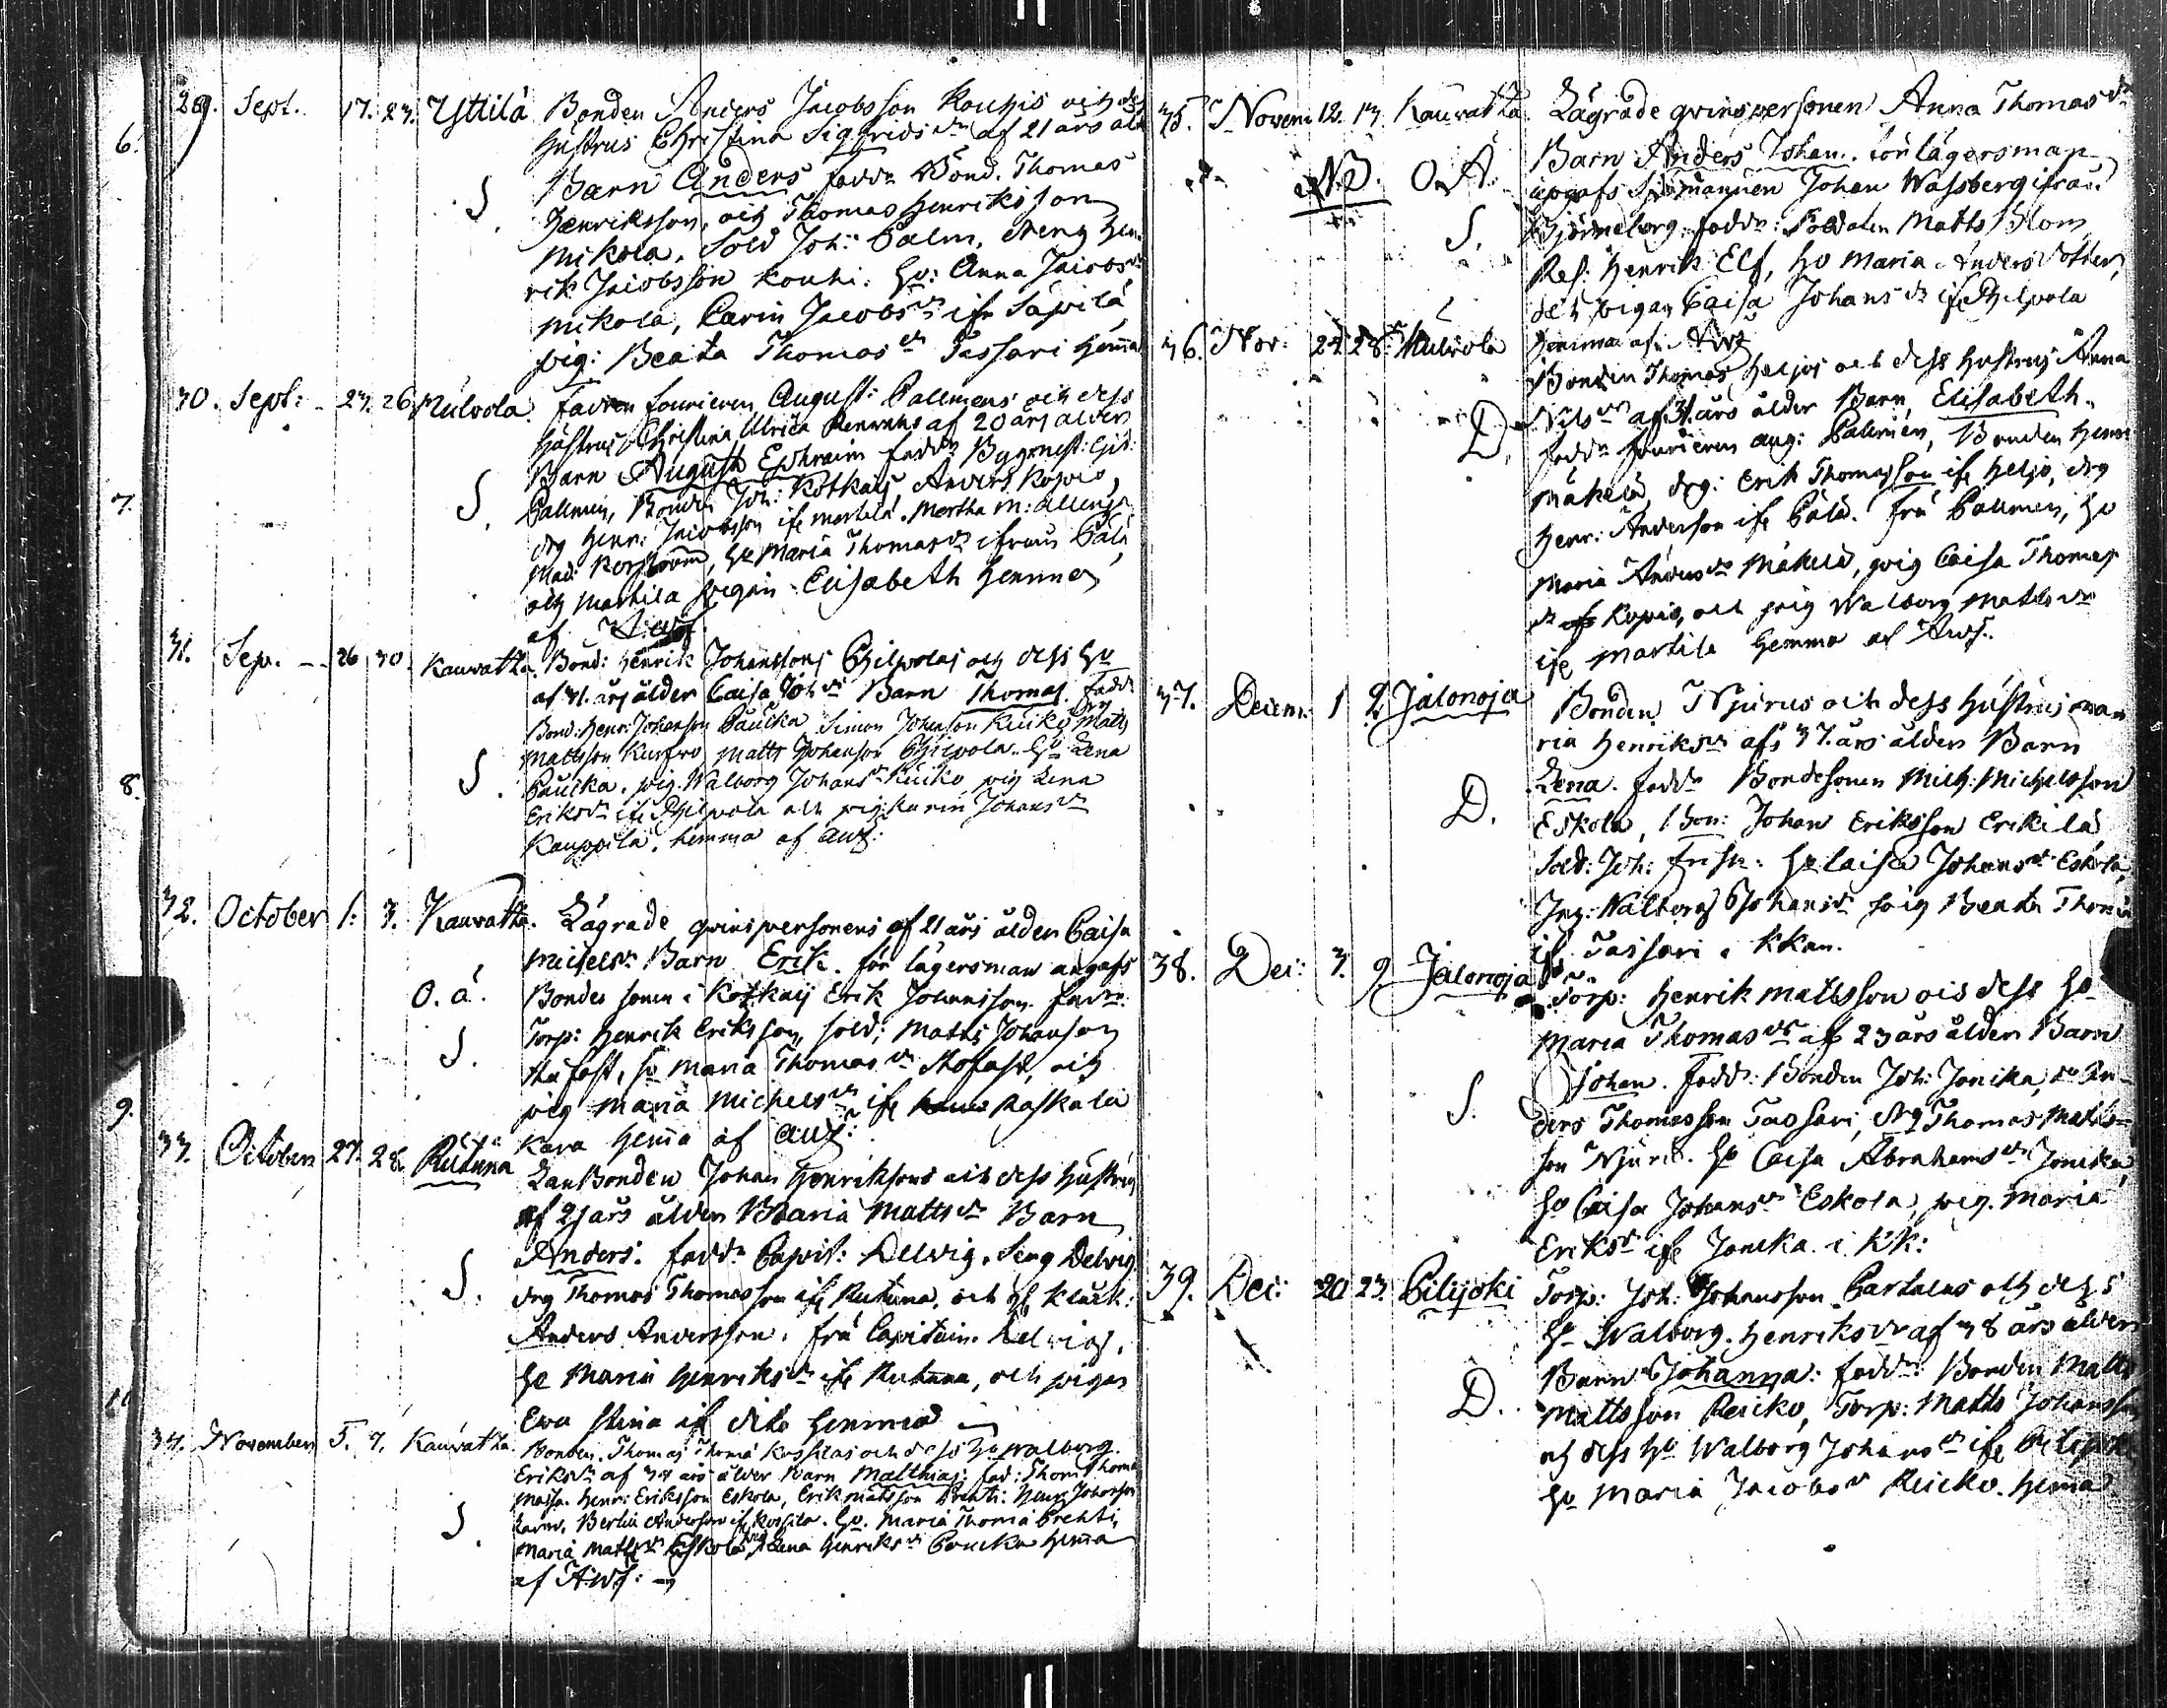 29. Sept. 17. 23. Yttilä Bonden Anders Jacobsson Kouhis och dess
hustrus Christina Sigfrids dr af 21 års ålder
6. Barn Anders fadd. Bond. Thomas
S. Henriksson, och Thomas Henriksson
Mikola, Sold Joh: Palm, dreng Hen
rik Jacobsson Kouhi. Hu: Anna Jacobs dr
Mikola, Carin Jacobs dr ifr Säpilä
pig: Beata Thomas dr Tassari hemma
30. Sept: 23. 26 Mulvola fourieren August: Pallmens och dess
hustrus Christina Ulrica af 20 års ålder
Barn August Ephraim fadd
7. S. Pallmen, Bonden Joh: Kotkas, Anders Kopio,
drg Henr: Jacobsson ifr Martila. Martha
Mad: Hu Maria Thomas dr ifrån Pälä
och Martila pigan Elisabeth hemma
af
31. Sep. 26 30. Kauvatza Bond: Henrik Johanssons Philpolas och dess Hu
af 31. års ålder Caisa Joh dr Barn Thomas. Fadd
Bond: Henr: Johansson Paucka Simon Johansson Reiko, drg Matts
Mattsson Matts Johansson Philpola. Hu Lena
8. S. Paucka. pig. Walborg Johans dr Reiko pig Lena
Eriks dr ifr Philpola och pig Karin Johans dr
Kauppila. hemma af
32. October 1. 3. Kauvatza. Lägrade qvinspersonens af 21 års ålder Caisa
Michels dr Barn Erik. för lägersman angafs
O. ä. Bonde sonen i Kotkais Erik Johansson. fadd:
S. Torp: Henrik Eriksson, sold: Matts Johansson
Stufast, Hu Maria Thomas dr Stofast, och
9. pig Maria Michels dr ifr Raskala
Kara hemma af
33. October 27. 28. Rutuna Lanbonden Johan Henrikssons och dess hustrus
af 25 års ålder Maria Matts dr Barn
S. Anders. fadd Capit: Delwig. Serg Delwig
drg Thomas Thomasson ifr Rutuna, och Kluck:
Anders Andersson. fru Capitain Delwig,
Hu Maria Henriks dr ifr Rutuna, och pigan
11 Ewa Stina if dito hemma
34. November 5. 7. Kauvatza. Bonden Thomas Thomæ Kossilas och dess Hu Walborg
Eriks dr af 34 års ålder Barn Matthias: fad: Thom Thomæ
Henr: Eriksson Eskola, Erik Matsson Prehti: Henr Johansson
S. Andersson ifr Kossila. Hu. Maria Thomæ Prehti,
Maria Matts dr Eskola, pig Lena Henriks dr Paucka hemma
af
35. Novem 12. 13. Kauvatza Lägrade qvinspersonen Anna Thomas dr
NB. O.Ä. Barn Anders Johan. för lägersman
upgafs Sjömannen Johan Wassberg ifrån
S. Björneborg. fadd: Soldaten Matts Blom
Res: Henrik Elf, Hu Maria Anders dotter,
och pigan Caisa Johans dr ifr Philpola
36. Nov. 24. 28. Mulvola hemma af
Bonden Thomas Heljos och dess hustrus Anna
Nils dr af 31. års ålder Barn Elisabeth.
D. fadd fourieren Aug: Pallmen, Bonden Henr
Mäkelä, drg: Erik Thomasson ifr Heljo, drg
Henr: Andersson ifr Pälä. Fru Pallmen, Hu
Maria Anders dr Mäkelä, pig Caisa Thomas
dr Kopio, och pig Walborg Matts dr
ifr Martila hemma af
37. Decem. 1 2. Jalonoja Bonden Njurus och dess hustrus Ma
ria Henriks dr af 37. års ålder Barn
Lena. fadd Bondesonen Mich: Michelsson
D. Eskola, Bon: Johan Eriksson Erikilä
Sold: Joh: Frisk: Hu Caisa Johans dr Eskola,
Walborg Johans dr pig Beata Thomæ
if Tassari i KKan.
38. Dec: 3. 9. Jalonoja Torp: Henrik Mattsson och dess Hu
Maria Thomas dr af 23 års ålder Barn
Johan. Fadd: Bonden Joh: Jonicka, An-
S. ders Thomasson Tassari, drg Thomas Matts-
son Njurus. Hu Caisa Abrahams dr Jonicka
Hu Caisa Johans dr Eskola, pig. Maria
Eriks dr ifr Jonicka i KK:
39. Dec: 20 23. Pilijoki Torp: Joh: Johansson Partalas och dess
Hu Walborg Henriks dr af 38 års ålder
Barn Johanna: fadd: Bonden Matts
D. Mattsson Reicko, Torp: Matts Johansson
och dess Hu Walborg Johans dr ifr Pilijoki
Hu Maria Jacobs dr Reicko. hemma